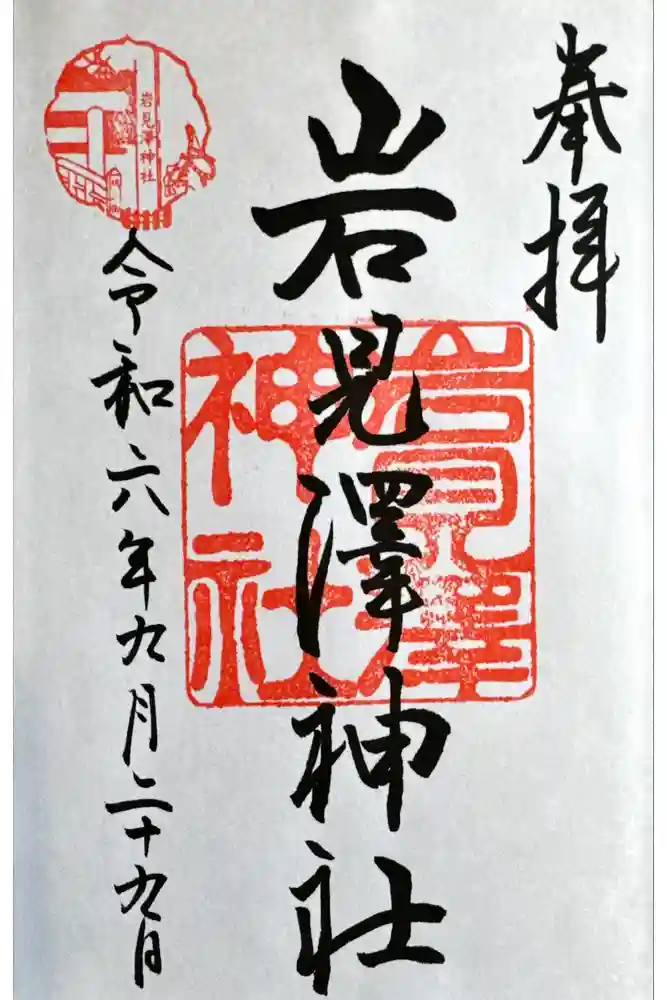 奉拝
岩見澤神社
岩見澤神社
令和六年九月二十九日
岩見澤神社